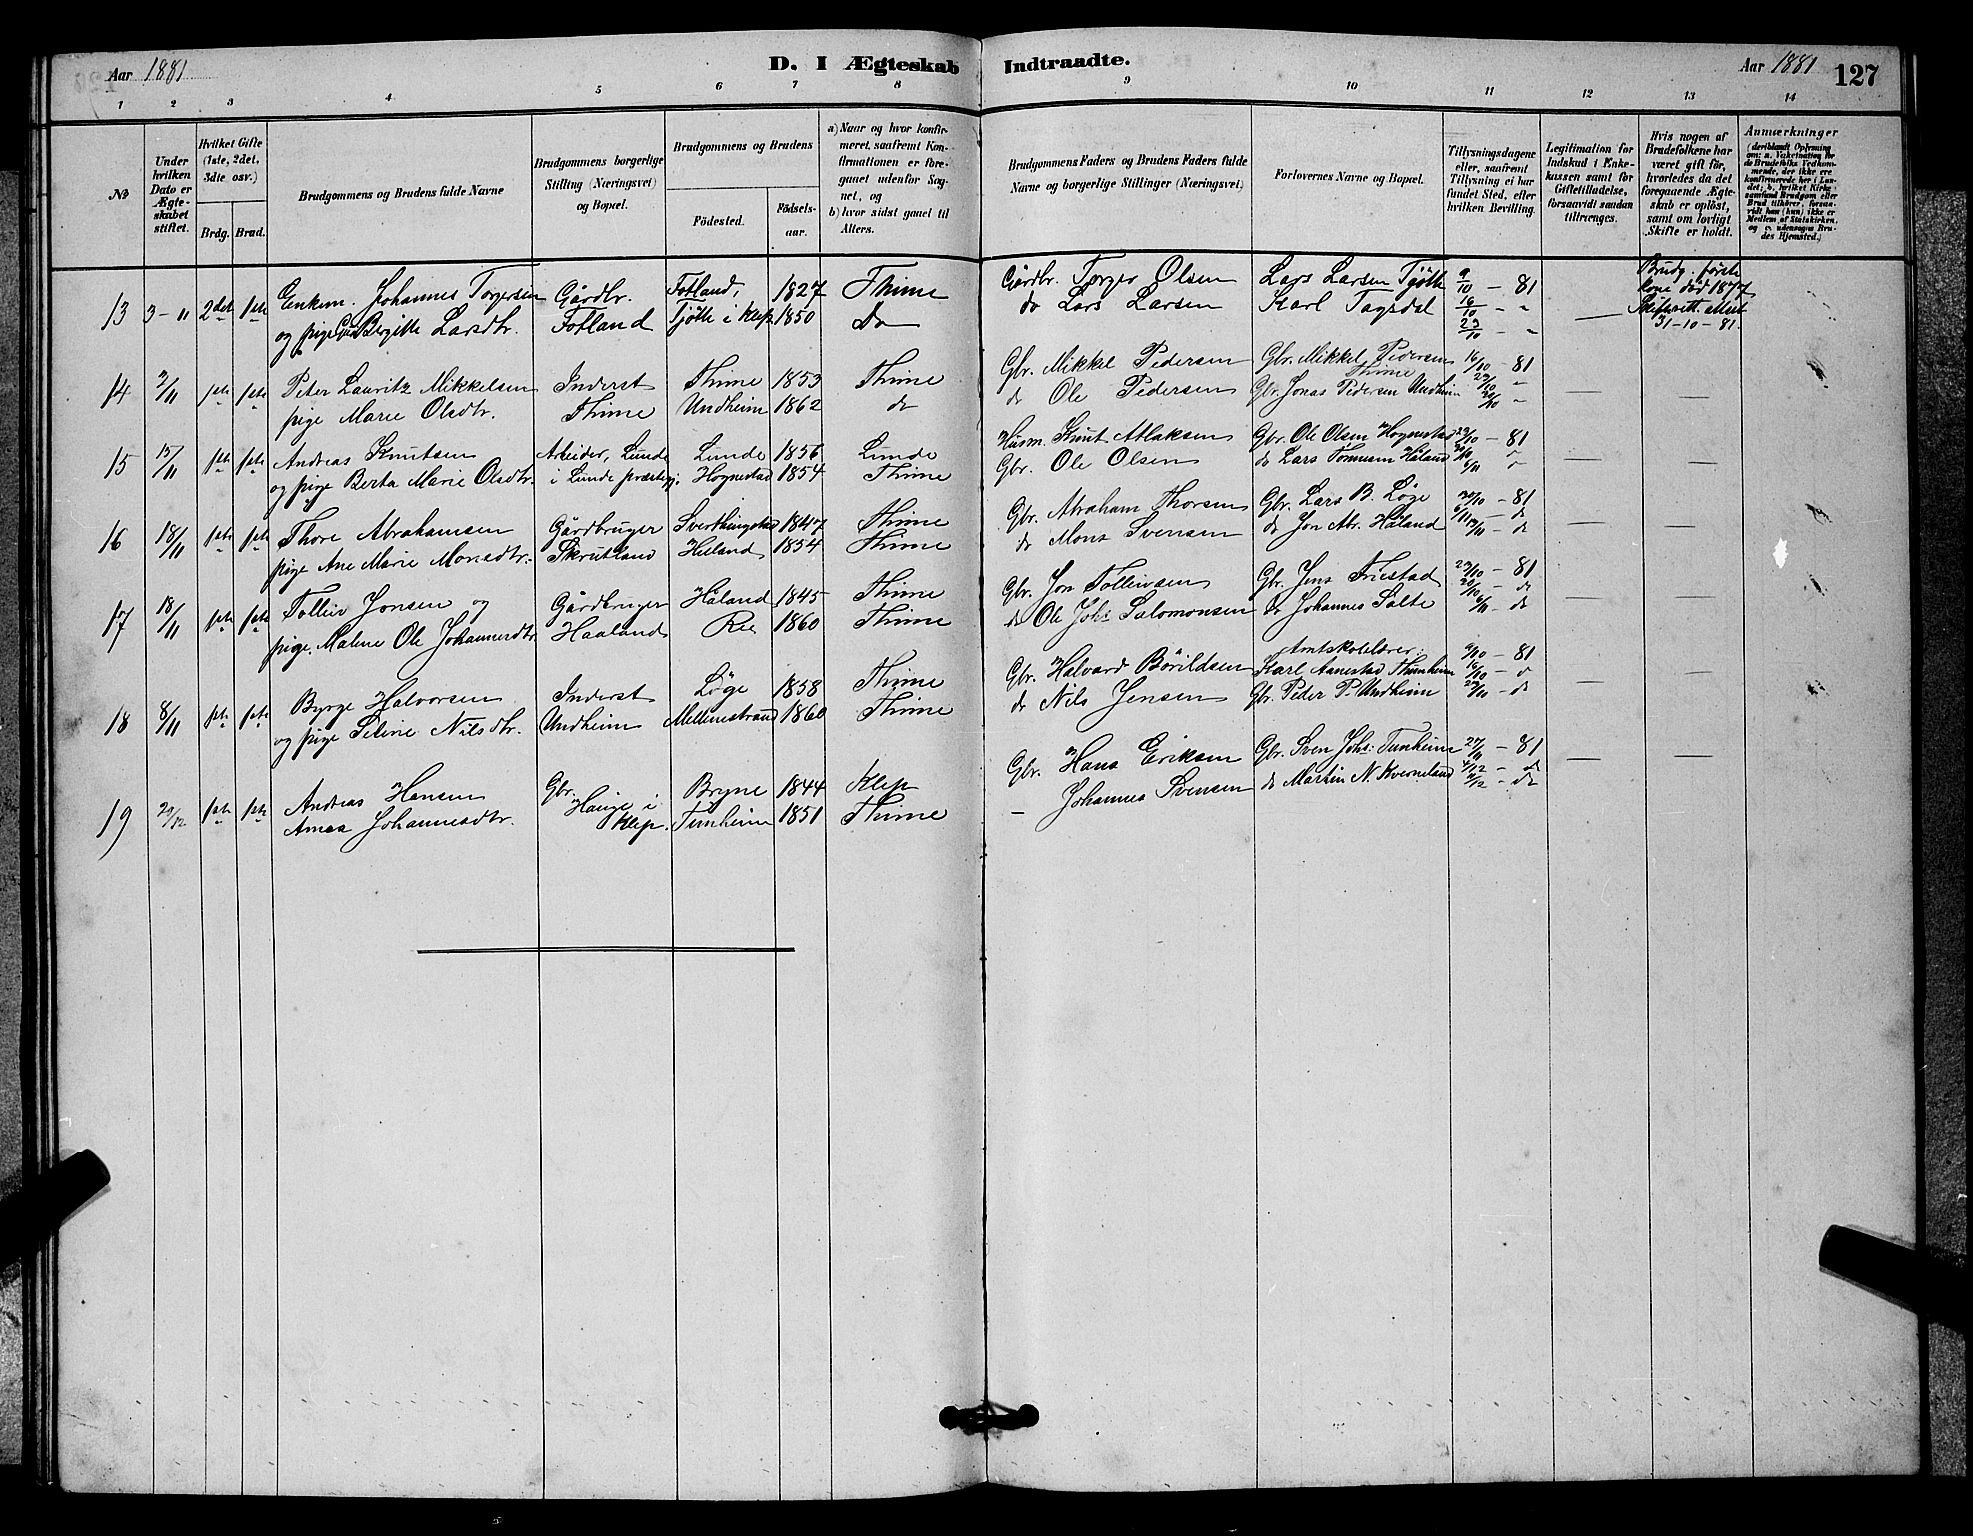 Aar 1881
D. I Ægteskab Indtraadte.
Aar 1881
127
1 2 3 4 5 6 7 8 9 10 11 12 13 14
No
Under hvilken Dato er Ægteskabet stiftet.
Hvilket Gifte (1ste, 2det, 3die osv.)
Brdg. Brud.
Brudgommens og Brudens fulde Navne
Brudgommens borgerlige Stilling (Næringsvei) og Bopæl.
Brudgommens og Brudens
Födested.
Födselsaar.
a) Naar og hvor konfirmeret, saafremt Konfirmationen er foregaaet udenfor Sognet, og
b) hvor sidst gaaet til Alters.
Brudgommens Faders og Brudens Faders fulde Navne og borgerlige Stillinger (Næringsvei)
Forlovernes Navne og Bopæl.
Tillysningsdagene eller, saafremt Tillysning ei har fundet Sted, efter hvilken Bevilling.
Legitimation for Indskud i Enkekassen samt for Giftetilladelse, forsaavidt saadan tiltrænges.
Hvis nogen af Brudefolkene har været gift før, hvorledes da det foregaaende Ægteskab er oplöst, samt om lovligt Skifte er holdt.
Anmærkninger (deriblandt Oplysning om: a. Vakcination for de Brudefolks Vedkommende, der ikke ere konfirmerede her i Landet; b. hvilket Kirkesamfund Brudgom eller Brud tilhörer, forsaavidt han (hun) ikke er Medlem af Statskirken, og c. udensogns Brudes Hjemsted.)
13 3-11 2det 1ste Enkem. Johannes Torgersen Gårdbr. Fotland, 1827 Thime Gårdbr. Torger Olsen Lars Larsen Tjøtte 9/10 - 81 Brudg. første
og pige Bergitte Larsdtr. Fotland Tjötte i Klep 1850 Do do Lars Larsen Karl Tagsdal 16/10 - " — kone död 1877
23/10 - " Skifterett. attest
31-10-81.
14 2/11 1ste 1ste Peter Lauritz Mikkelsen Inderst Thime 1853 Thime Gbr. Mikkel Pedersen Gbr. Mikkel Pedersen Thime 16/10 - 81
pige Marie Olsdtr. Thime Undheim 1862 do do Ole Pedersen Gbr. Jonas Pedersen Undheim 23/10 " 30/10 " — —
15 15/11 1ste 1ste Andreas Knutsen Arbeider, Lunde Lunde 1856 Lunde Husm. Knut Atlaksen Gbr. Ole Olsen Hognestad 23/10 - 81
og pige Berta Marie Olsdtr. i Lunde præstegj. Hognestad 1854 Thime Gbr. Ole Olsen do Lars Tønnesen Håland 30/10 " 6/11 " — —
16 18/11 1ste 1ste Thore Abrahamsen Gårdbruger Sverthingstad 1847 Thime Gbr. Abraham Thorsen Gbr. Lars B. Løge 30/10 - 81
pige Ane Marie Monsdtr. Skrutland Heiland 1854 Thime do Mons Svensen do Jon Abr. Håland 6/11 - do 13/11 - do — —
17 18/11 1ste 1ste Tolleiv Jonsen og Gårdbruger Håland 1845 Thime Gbr. Jon Tolleivsen Gbr. Jens Friestad 23/10 - 81
pige Malene Ole Johannesdtr. Haaland Ree 1860 Thime do Ole Johs Salomonsen do Johannes Salte 30/10 - do 6/11 - do — —
18 8/11 1ste 1ste Byrge Halvorsen Inderst Løge 1858 Thime Gbr. Halvard Börildsen Amtskolelærer Karl Aanestad Thunheim 9/10 - 81 16/10 - do
og pige Seline Nilsdtr. Undheim Mellemstrand 1860 Thime do Nils Jensen Gbr. Peder P. Undheim 23/10 - do — —
19 29/12 1ste 1ste Andreas Hansen Gbr. Hauge i Bryne 1844 Klep Gbr. Hans Eriksen Gbr. Sven Johs. Tunheim 27/11 - 81
Anna Johannesdtr. Klep. Tunheim 1851 Thime — Johannes Svensen do Martin N. Kverneland 4/12 - do 11/12 - do — —